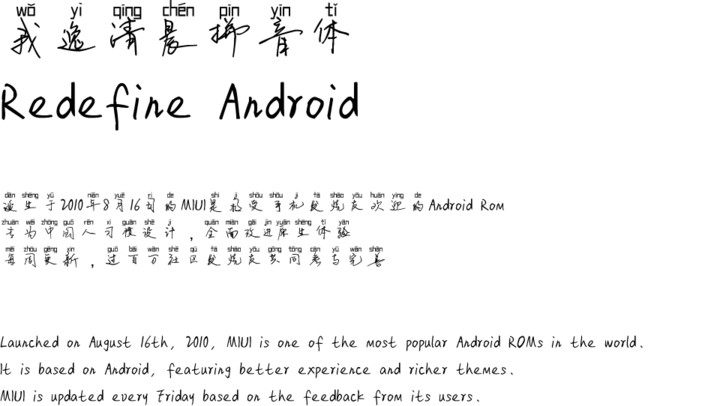 wǒ yì qīng chén pīn yīn tǐ
我逸清晨拼音体
Redefine Android
dàn shēng yú nián yuè rì de shì jī shòu shǒu jī fā shāo yǒu huān yíng de
诞生于2010年8月16日的MIUI是极受手机发烧友欢迎的Android Rom
zhuān wèi zhōng guó rén xí guàn shè jì quán miàn gǎi jìn yuán shēng tǐ yàn
专为中国人习惯设计，全面改进原生体验
měi zhōu gēng xīn guò bǎi wàn shè qū fā shāo yǒu gòng tóng cān yǔ wán shàn
每周更新，过百万社区发烧友共同参与完善
Launched on August 16th, 2010, MIUI is one of the most popular Android ROMs in the world.
It is based on Android, featuring better experience and richer themes.
MIUI is updated every Friday based on the feedback from its users.